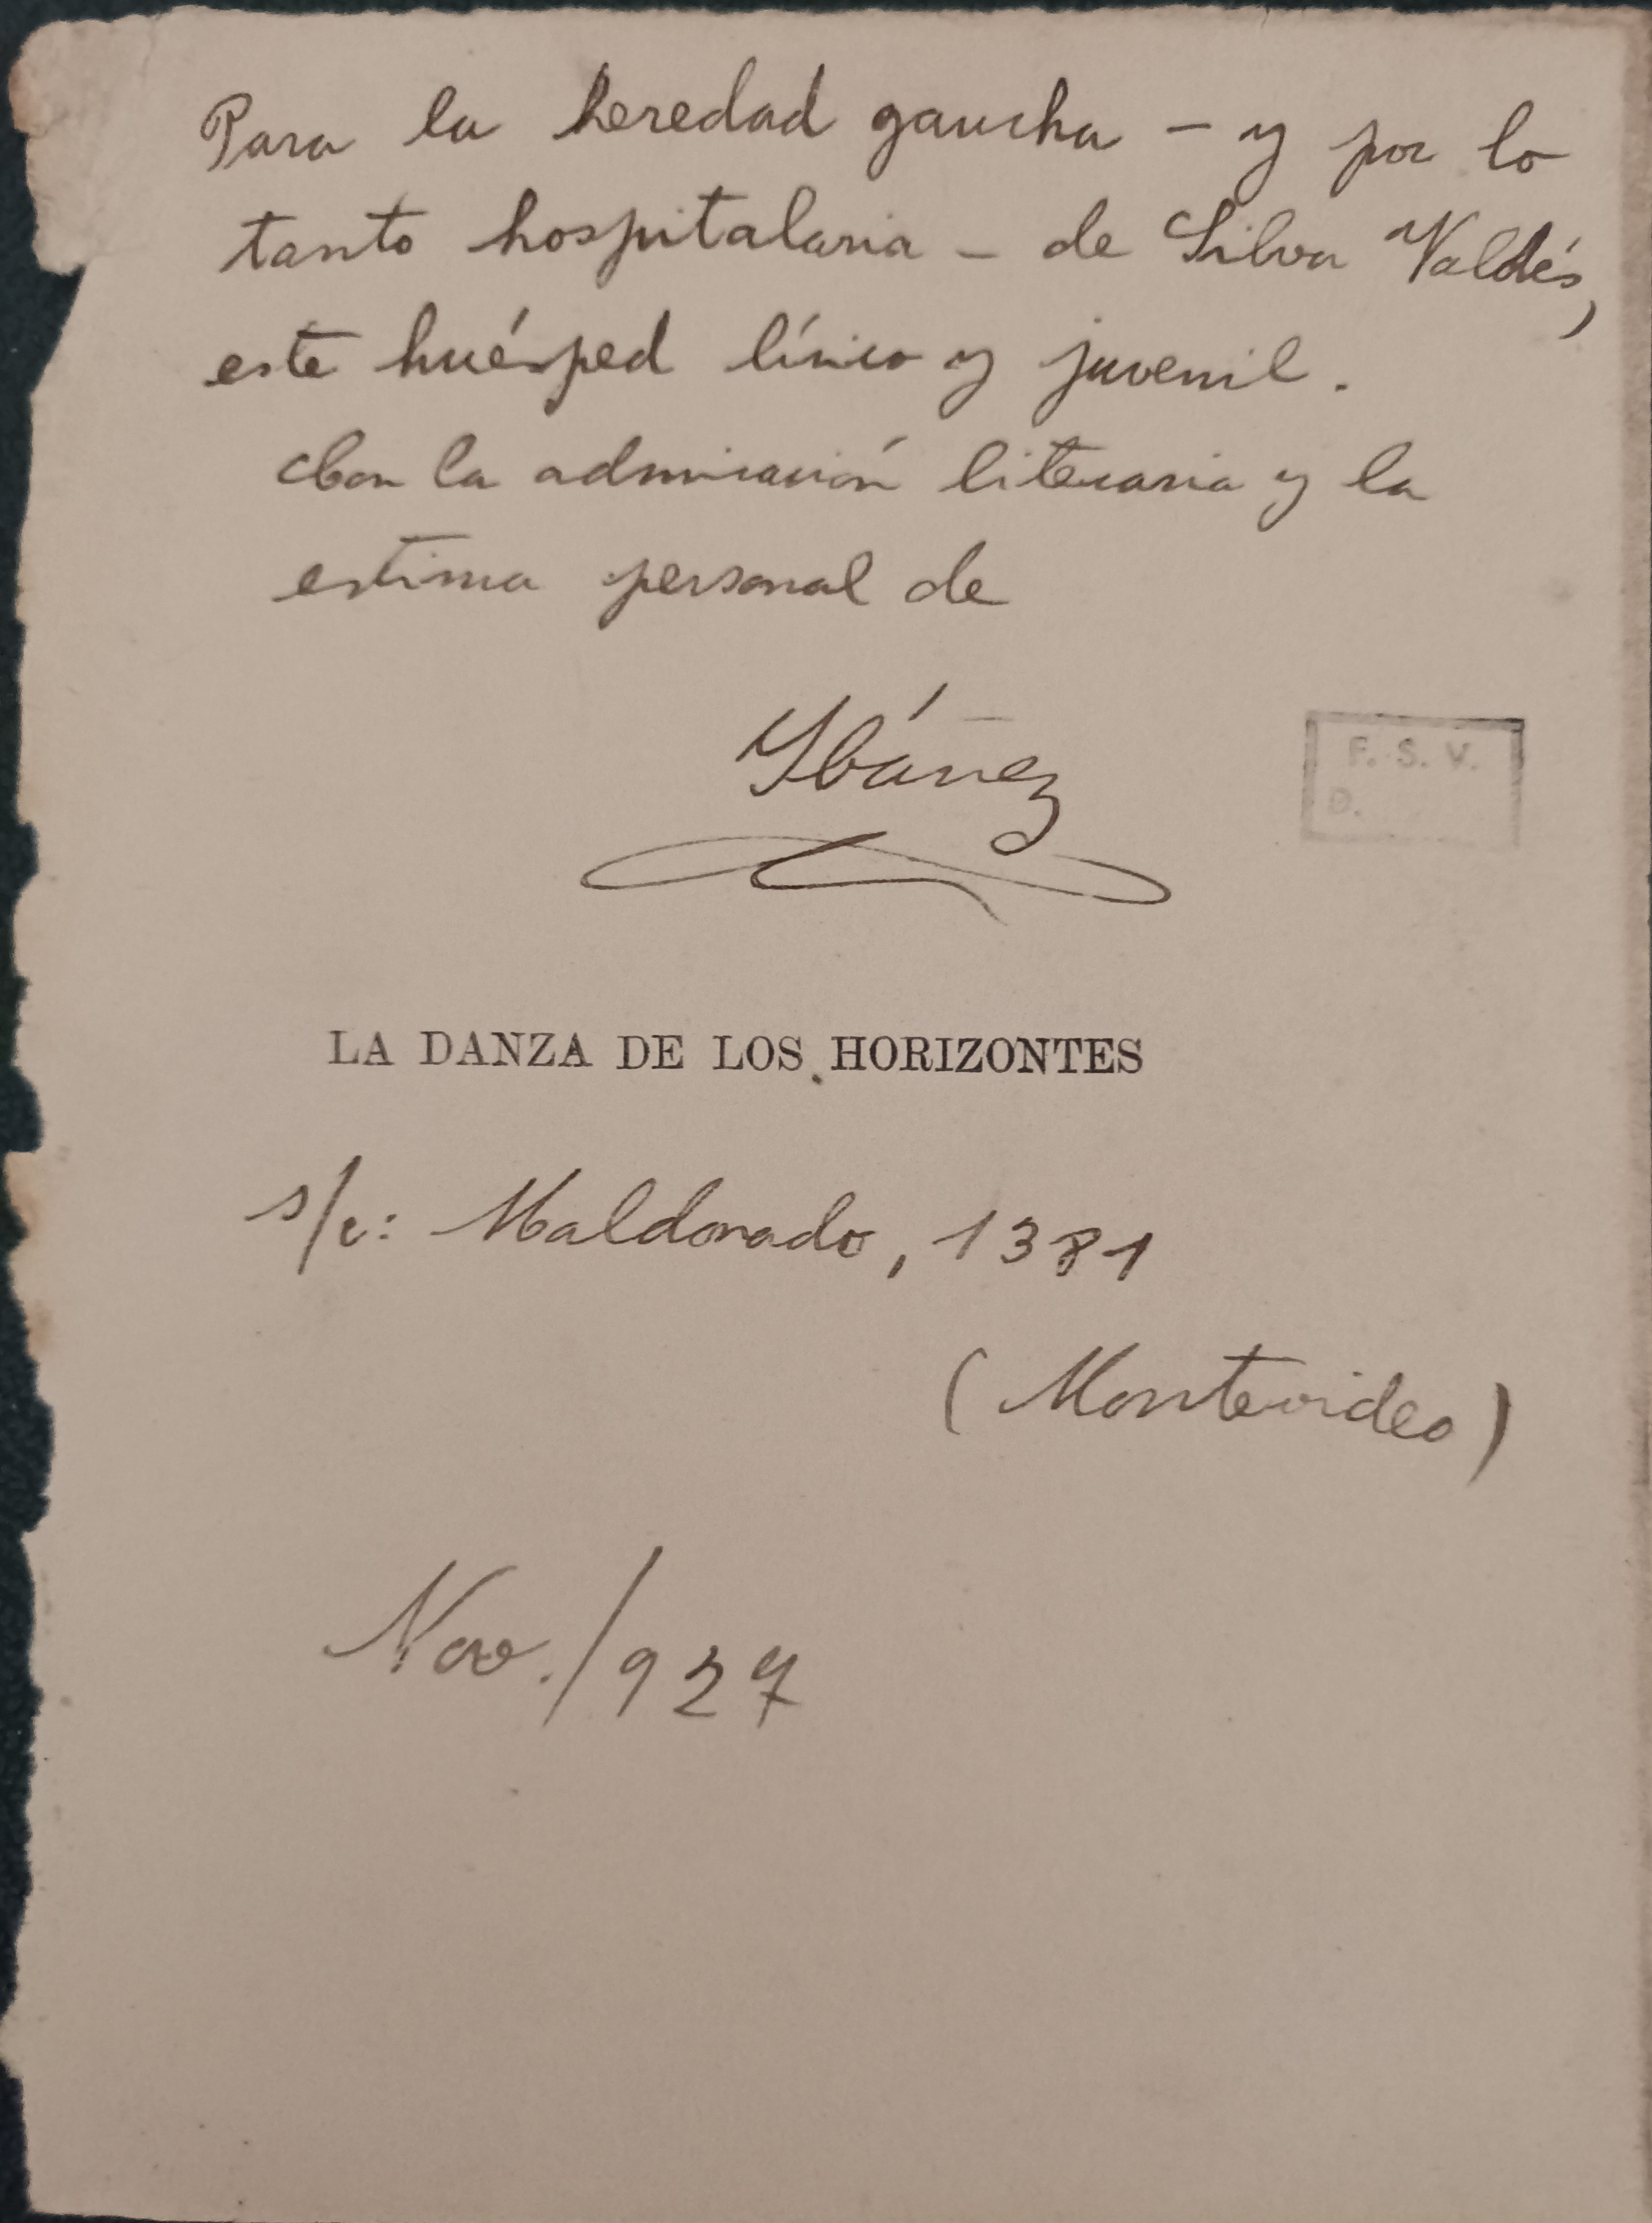 Para la heredad gaucha – y por lo
tanto hospitalaria – de Silva Valdés,
este huésped lírico y juvenil.
Con la admiración literaria y la
estima personal de
Ibáñez
F. S. V.
D.
LA DANZA DE LOS HORIZONTES
s/c: Maldonado, 1381
(Montevideo)
Nov./927